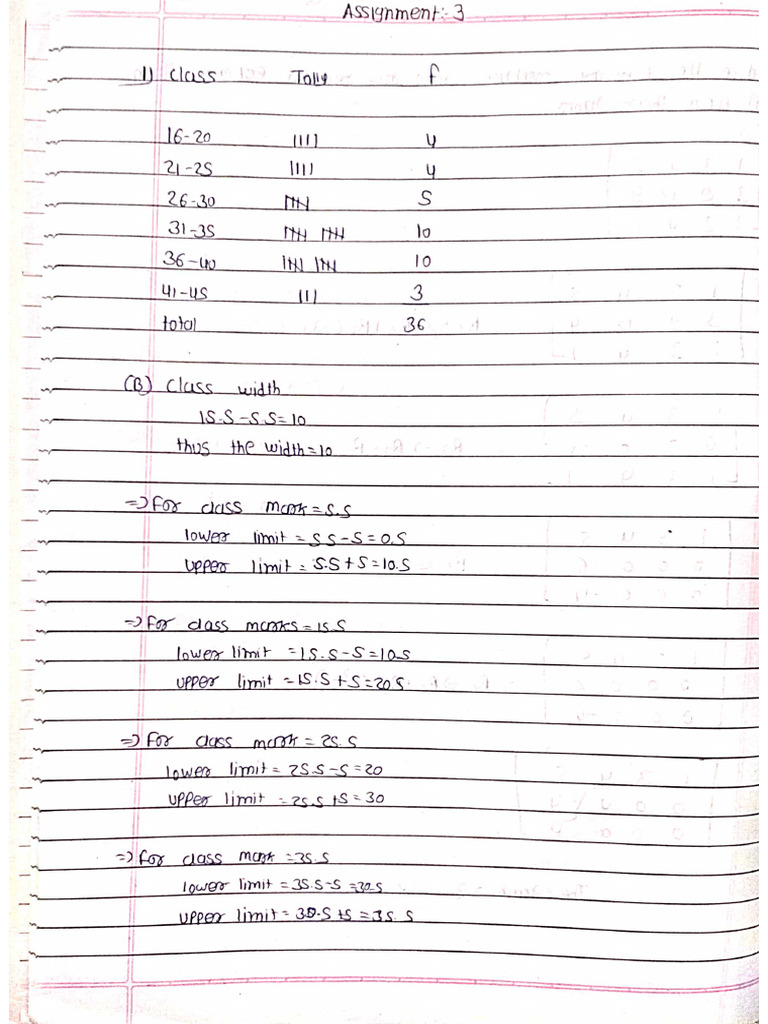 Assignment:- 3
1) Class Tally f
16-20 |||| 4
21-25 |||| 4
26-30 𝍸 5
31-35 𝍸 𝍸 10
36-40 𝍸 𝍸 10
41-45 ||| 3
total 36
(B) Class width
15.5-5.5=10
thus the width=10
=> for class mark=5.5
lower limit = 5.5-5=0.5
upper limit = 5.5+5=10.5
=> for class marks=15.5
lower limit =15.5-5=10.5
upper limit =15.5+5=20.5
=> for class mark = 25.5
lower limit= 25.5-5=20
upper limit =25.5+5=30
=> for class mark =35.5
lower limit =35.5-5=30.5
upper limit= 30.5+5=35.5